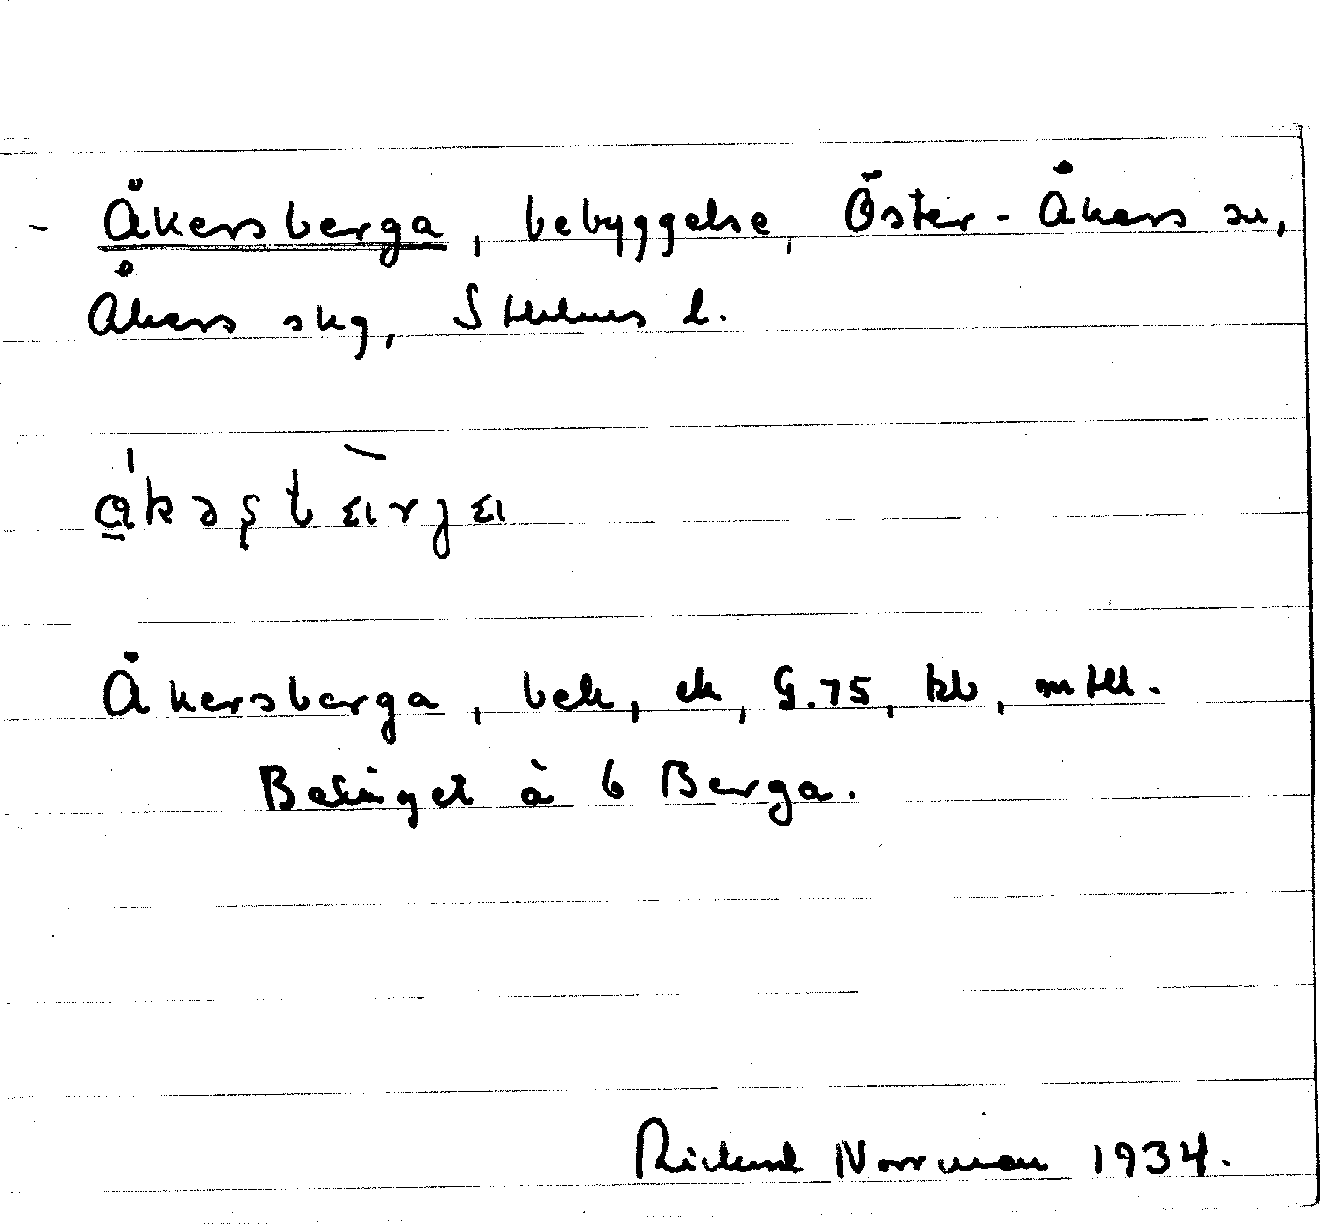 - Åkersberga, bebyggelse, Öster-Åkers sn,
Åkers skg, Sthlms l.
Åkersberga, bek, ek, G.75, kb, mtll.
Beläget å b Berga.
Rickard Norrman 1934.